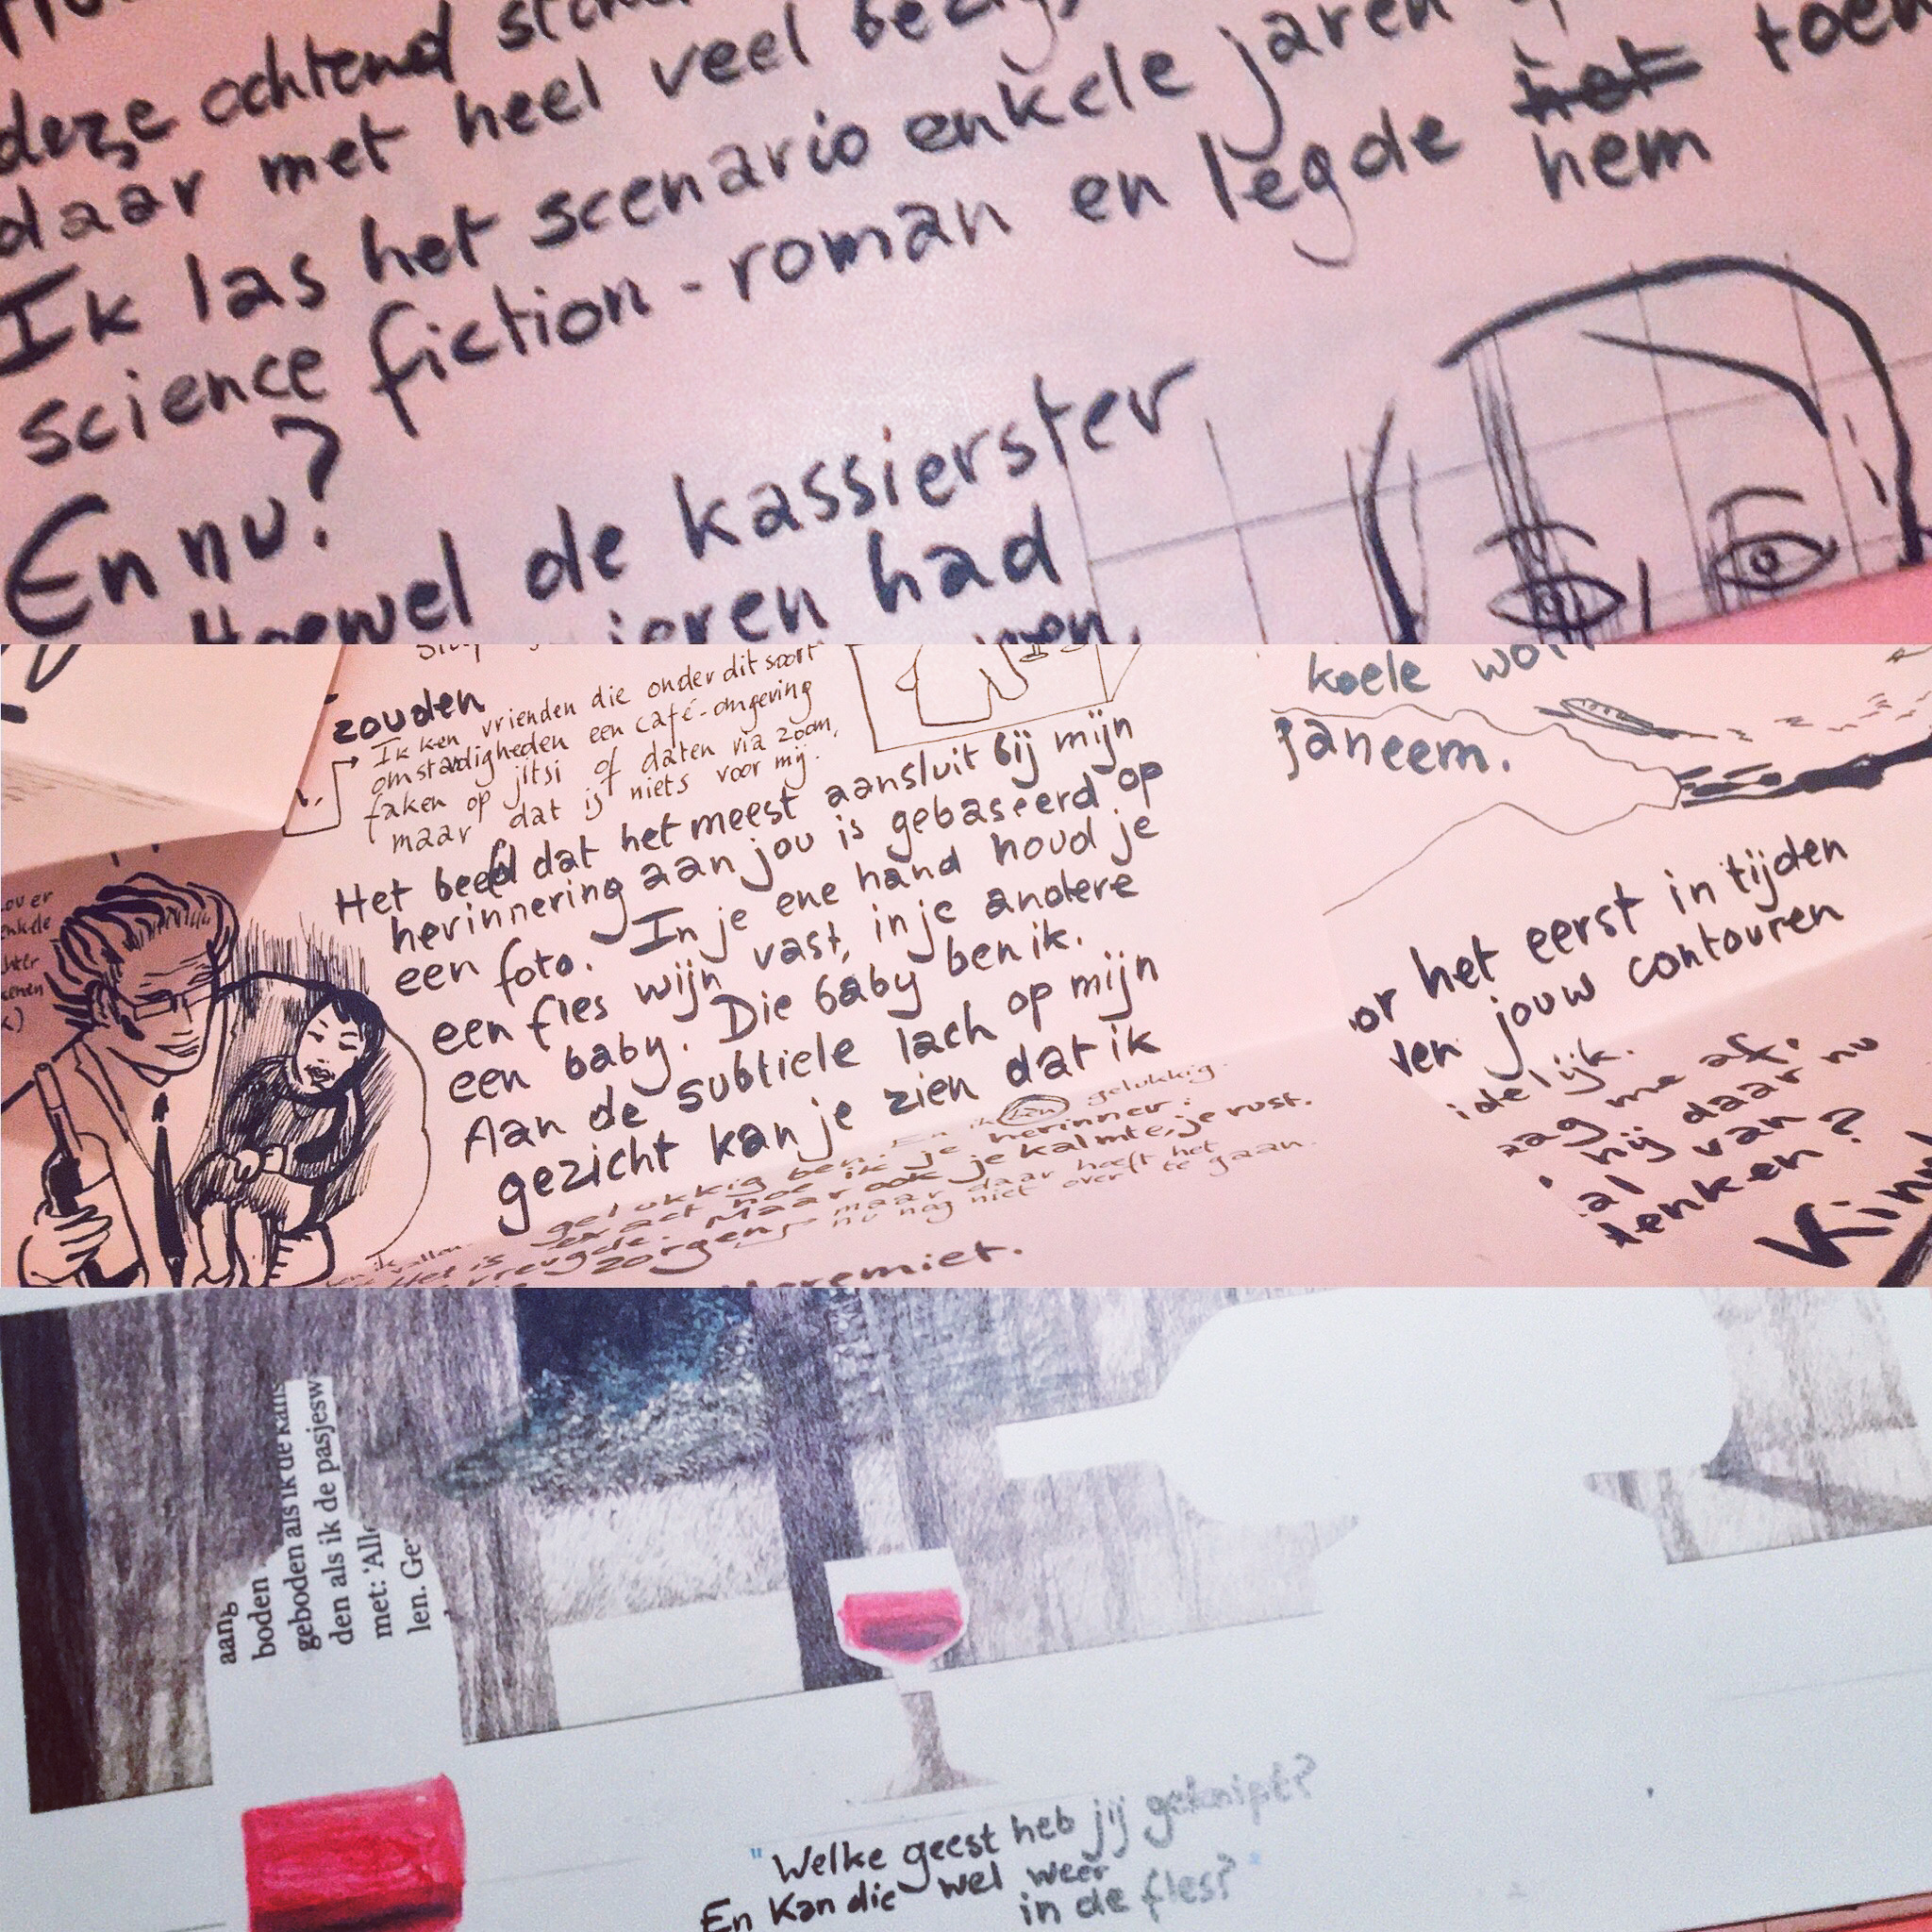 deze ochtend
daar met heel veel
Ik las het scenario enkele jaren
science fiction - roman en legde het toen
hem
En nu?
Hoewel de kassierster
had
zouden
Ik ken vrienden die onder dit soort
omstandigheden een café-omgeving
faken op jitsi of daten via zoom,
maar dat is niets voor mij.
Het beeld dat het meest aansluit bij mijn
herinnering aan jou is gebaseerd op
een foto. In je ene hand houd je
een fles wijn vast, in je andere
een baby. Die baby ben ik.
Aan de subtiele lach op mijn
gezicht kan je zien dat ik
gelukkig ben. En ik ben gelukkig.
Het is exact hoe ik je herinner:
vreugde. Maar ook je kalmte, je rust.
zorgen, maar daar hoeft het
nu nog niet over te gaan.
koele
janeem.
or het eerst in tijden
jouw contouren
idelijk.
me af,
hij daar nu
al van
denken?
aang
boden
geboden als ik de kans
den als ik de pasjesw
met: 'Alle
len. Ge
"Welke geest heb jij geknipt?
En kan die wel weer
in de fles?"